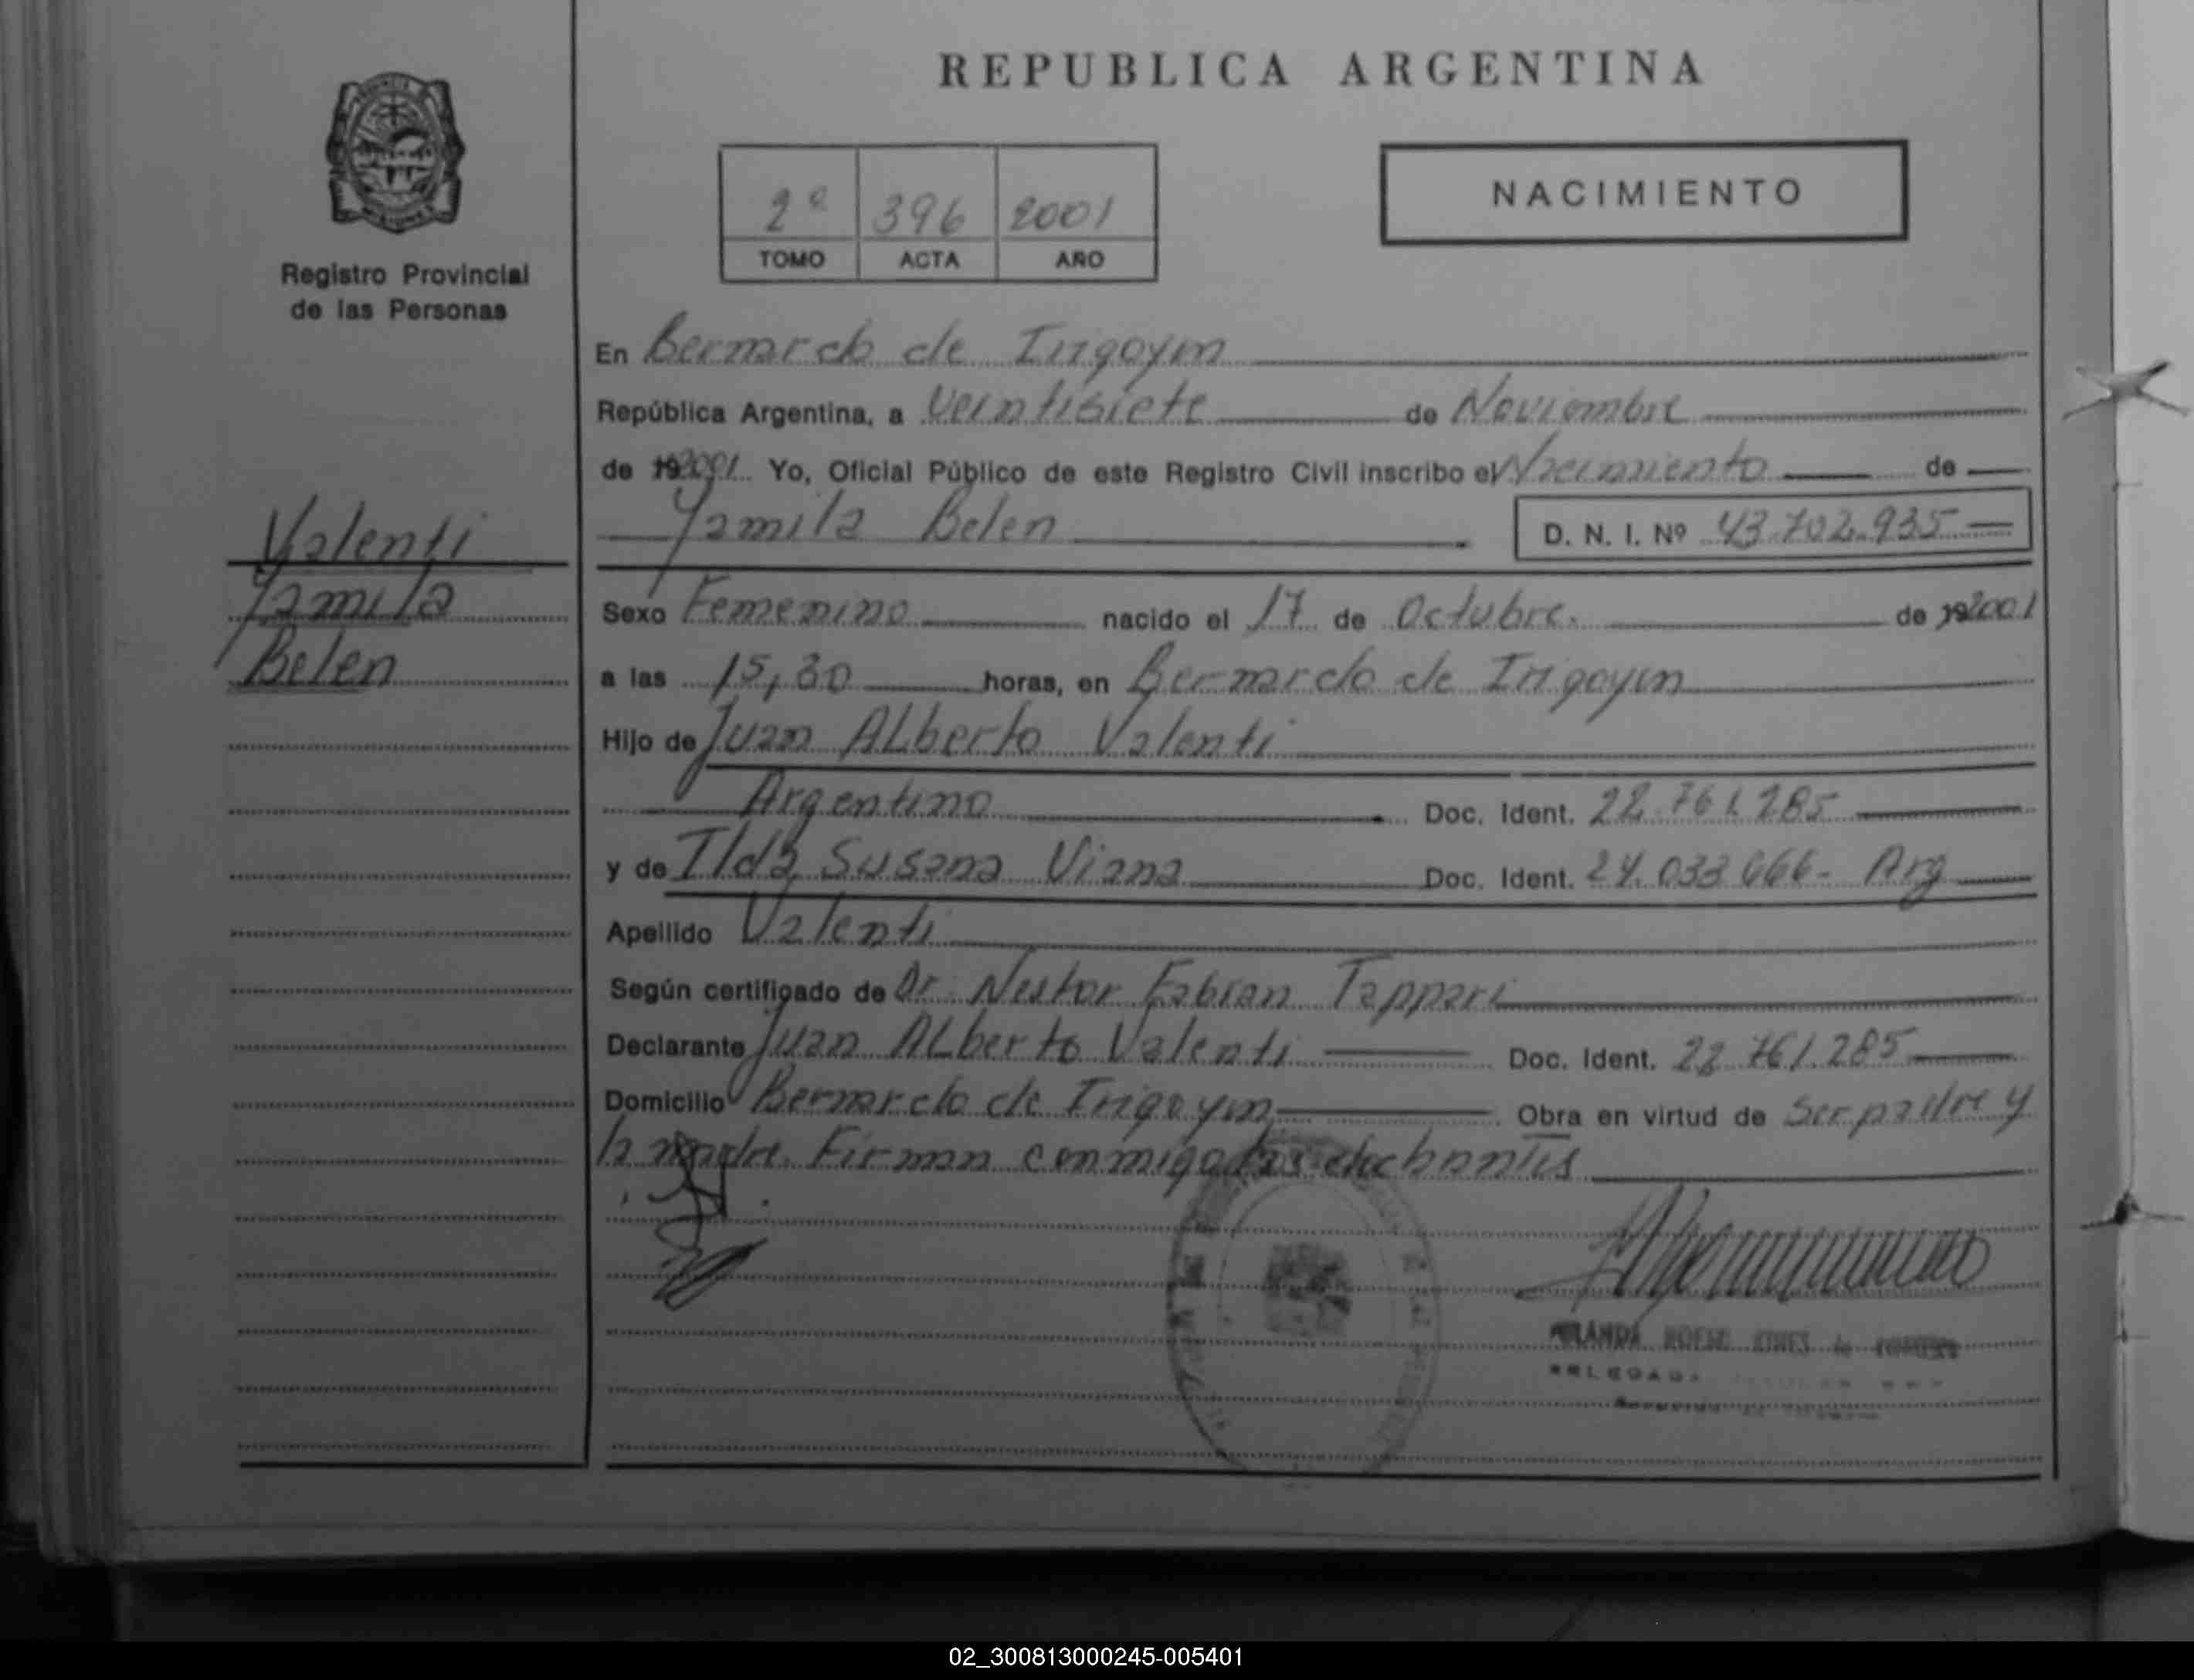 REPUBLICA ARGENTINA
2º 396 2001
TOMO ACTA AÑO
NACIMIENTO
Registro Provincial
de las Personas
Valenti
Yamila
Belen
En Bernardo de Irigoyen
República Argentina, a Veintisiete de Noviembre
de 192001 Yo, Oficial Público de este Registro Civil inscribo el Nacimiento de
Yamila Belen D. N. I. Nº 43.702.935
Sexo Femenino nacido el 17 de Octubre. de 192001
a las 15,30 horas, en Bernardo de Irigoyen
Hijo de Juan Alberto Valenti
Argentino Doc. Ident. 22.761.285
y de Ilda Susana Viana Doc. Ident. 24.033.666- Arg
Apellido Valenti
Según certificado de Dr. Nestor Fabian Tappari
Declarante Juan Alberto Valenti Doc. Ident. 22.761.285
Domicilio Bernardo de Irigoyen Obra en virtud de Ser padre y
la madre. Firman conmigo
DELEGADA
02_300813000245-005401